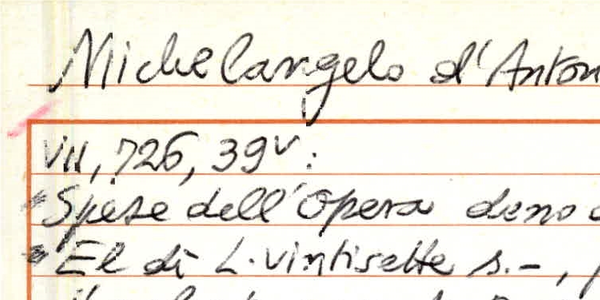 Michelangelo d'Anton
VII, 726, 39v:
Spese dell'Opera deno
El dì L. vintisette s.–,